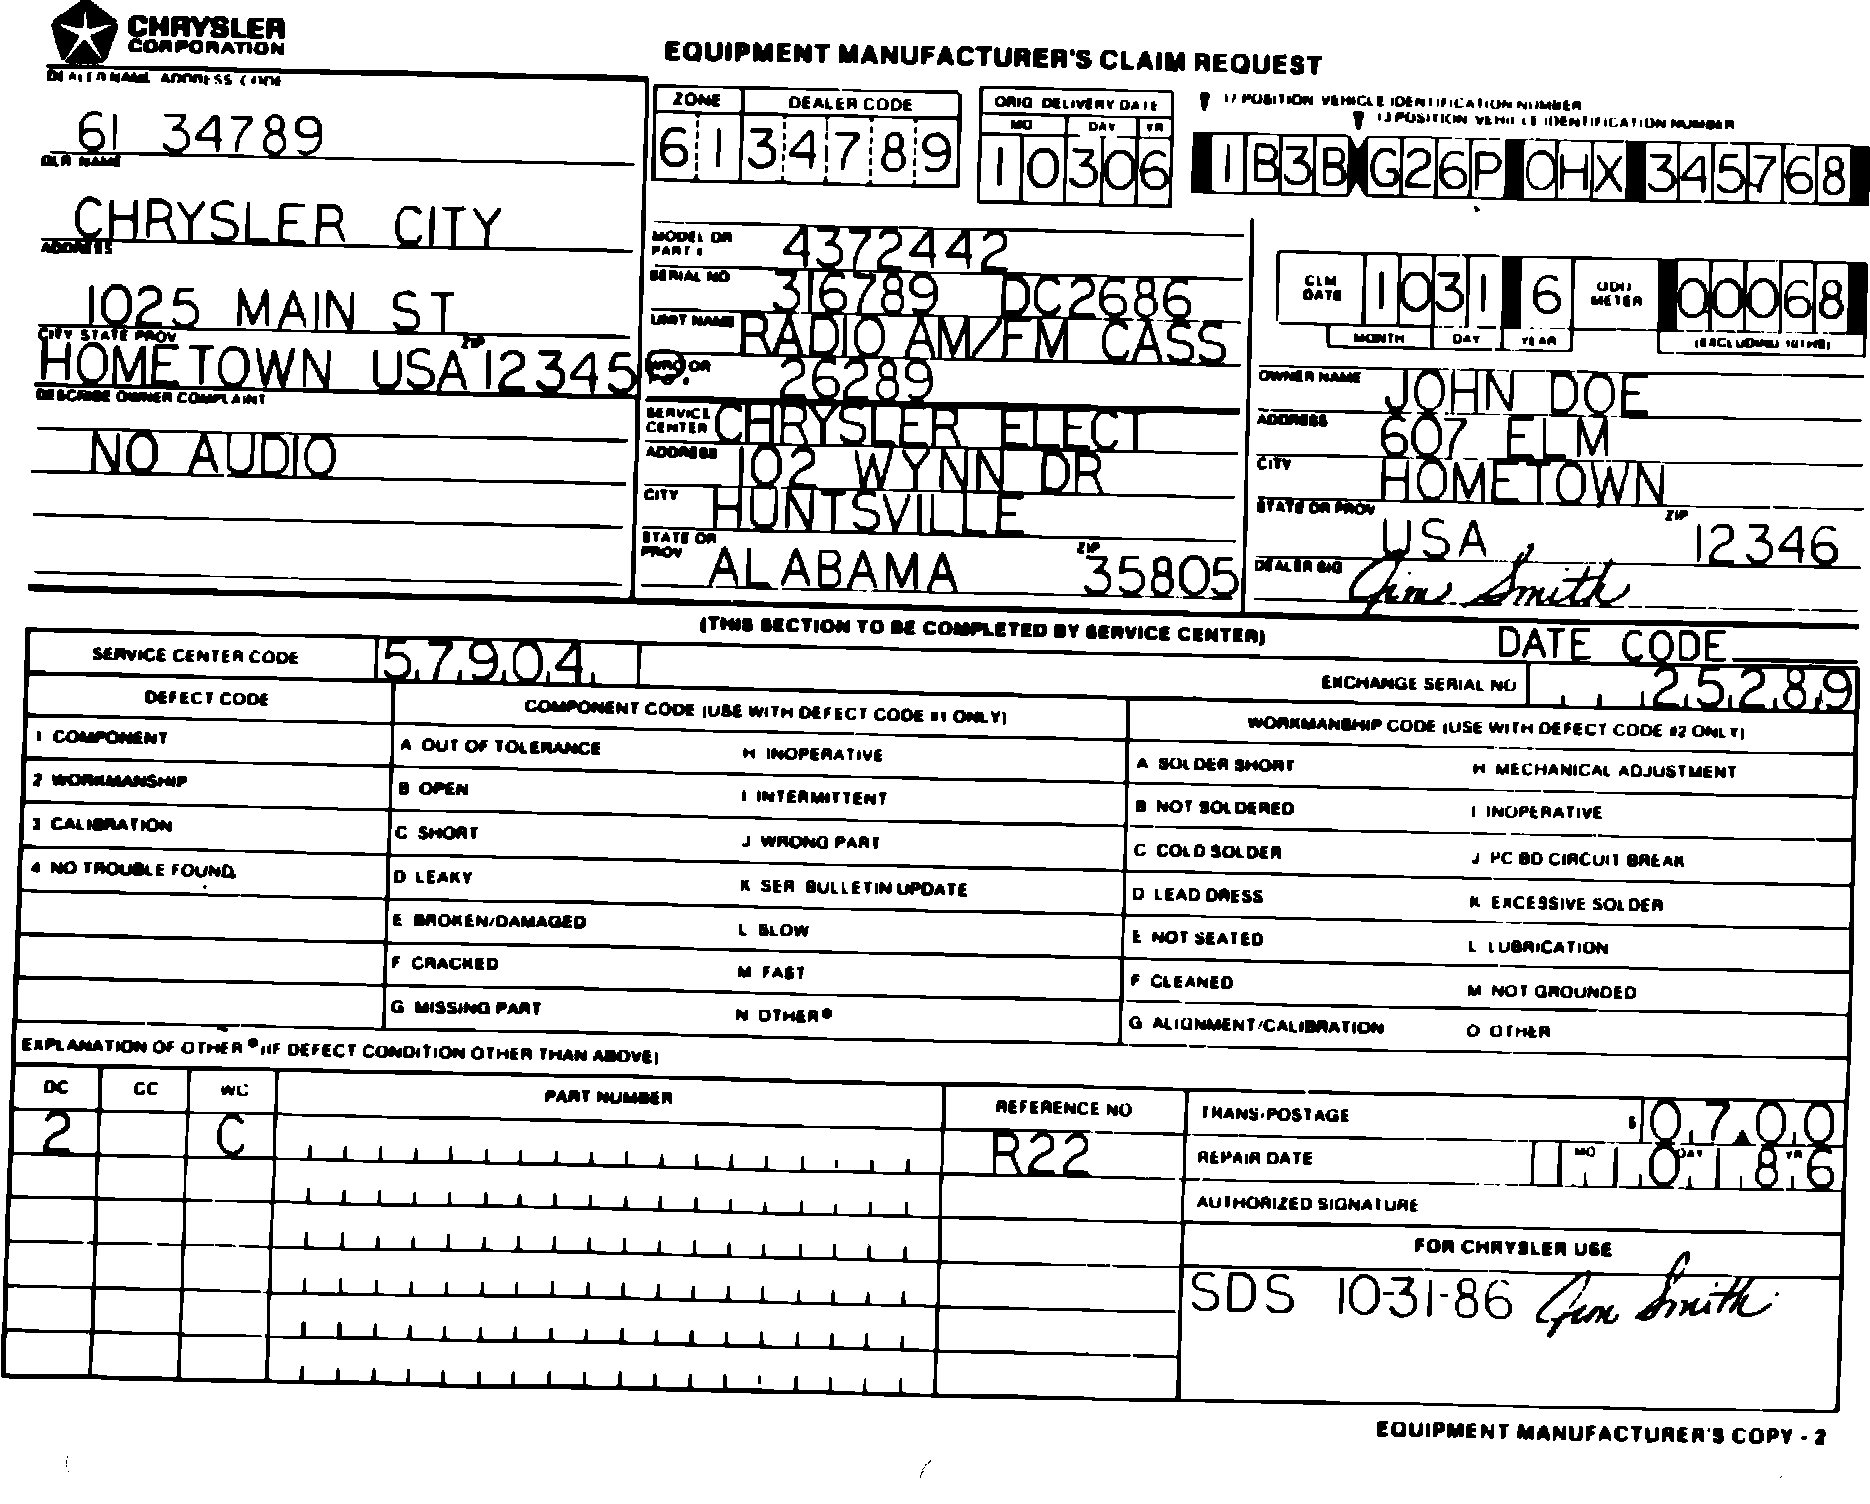 CHRYSLER
CORPORATION
EQUIPMENT MANUFACTURER'S CLAIM REQUEST
DEALER NAME ADDRESS CODE
61 34789
DLR NAME
CHRYSLER CITY
ADDRESS
1025 MAIN ST
CITY STATE PROV ZIP
HOMETOWN USA 12345
DESCRIBE OWNER COMPLAINT
NO AUDIO
ZONE DEALER CODE
6 1 3 4 7 8 9
ORIG DELIVERY DATE
MO DAY YR
1 0 3 0 6
17 POSITION VEHICLE IDENTIFICATION NUMBER
13 POSITION VEHICLE IDENTIFICATION NUMBER
1B3B G26P 0HX 345768
MODEL OR
PART # 4372442
SERIAL NO 316789 DC2686
UNIT NAME RADIO AM/FM CASS
WRO OR
26289
SERVICE
CENTER CHRYSLER ELECT
ADDRESS 102 WYNN DR
CITY HUNTSVILLE
STATE OR
PROV ALABAMA ZIP 35805
CLM
DATE 1 0 3 1 6
MONTH DAY YEAR
ODO
METER 00068
(EXCLUDING 10THS)
OWNER NAME JOHN DOE
ADDRESS 607 ELM
CITY HOMETOWN
STATE OR PROV USA ZIP 12346
DEALER SIG Jim Smith
(THIS SECTION TO BE COMPLETED BY SERVICE CENTER)
DATE CODE
SERVICE CENTER CODE 57904
EXCHANGE SERIAL NO 25289
DEFECT CODE
1 COMPONENT
2 WORKMANSHIP
3 CALIBRATION
4 NO TROUBLE FOUND
COMPONENT CODE (USE WITH DEFECT CODE #1 ONLY)
A OUT OF TOLERANCE H INOPERATIVE
B OPEN I INTERMITTENT
C SHORT J WRONG PART
D LEAKY K SER BULLETIN UPDATE
E BROKEN/DAMAGED L SLOW
F CRACKED M FAST
G MISSING PART N OTHER*
WORKMANSHIP CODE (USE WITH DEFECT CODE #2 ONLY)
A SOLDER SHORT H MECHANICAL ADJUSTMENT
B NOT SOLDERED I INOPERATIVE
C COLD SOLDER J PC BD CIRCUIT BREAK
D LEAD DRESS K EXCESSIVE SOLDER
E NOT SEATED L LUBRICATION
F CLEANED M NOT GROUNDED
G ALIGNMENT/CALIBRATION O OTHER
EXPLANATION OF OTHER * (IF DEFECT CONDITION OTHER THAN ABOVE)
DC CC WC PART NUMBER REFERENCE NO
2 C R22
TRANS-POSTAGE $ 07.00
REPAIR DATE MO DAY YR 1 1 0 1 8 6
AUTHORIZED SIGNATURE
FOR CHRYSLER USE
SDS 10-31-86 Jim Smith
EQUIPMENT MANUFACTURER'S COPY - 2